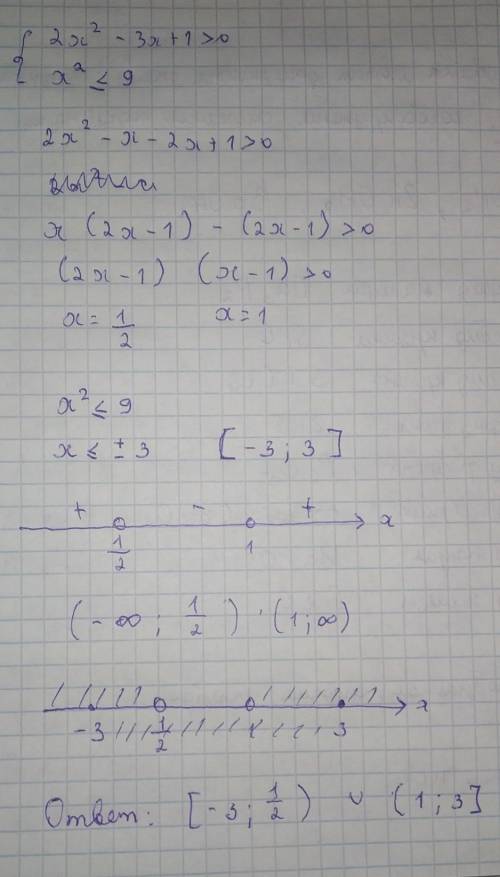 { 2x² - 3x + 1 > 0
x² ≤ 9
2x² - x - 2x + 1 > 0
x (2x - 1) - (2x - 1) > 0
(2x - 1) (x - 1) > 0
x = 1/2 x = 1
x² ≤ 9
x ≤ ± 3 [-3; 3]
+ - + x
1/2 1
(-∞; 1/2) · (1; ∞)
x
-3 1/2 1 3
Ответ: [-3; 1/2) ∪ (1; 3]